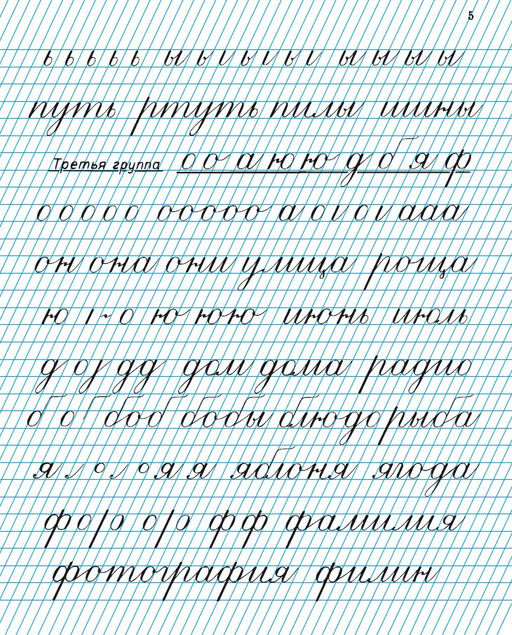 5
ь ь ь ь ь ы ь ı ь ı ь ı ы ы ы ы
путь ртуть пилы шины
Третья группа о о а ю ю д б я ф
о о о о о о о о о о а о ı о ı а а а
он она они улица роща
ю ı ~ о ю ю ю июнь июль
д о ȷ д д дом дома радио
б о б о б бобы блюдо рыба
я о о я я яблоня ягода
ф о / о о / о ф ф фамилия
фотография филин